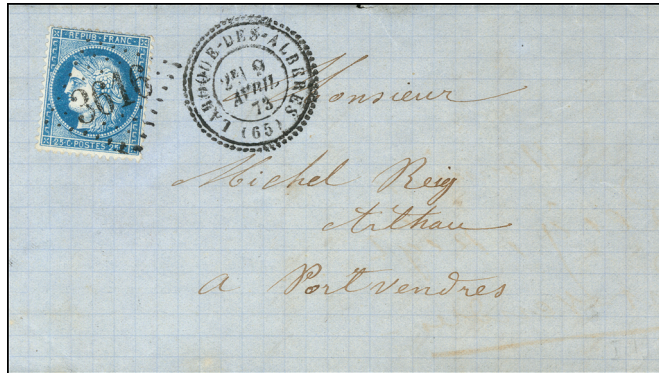 REPUB·FRANC·
3616
25·C·POSTES·25·C
LAROQUE-DES-ALBERES
2E/ 9
AVRIL
73
(65)
Monsieur
Michel Reig
à Port vendres